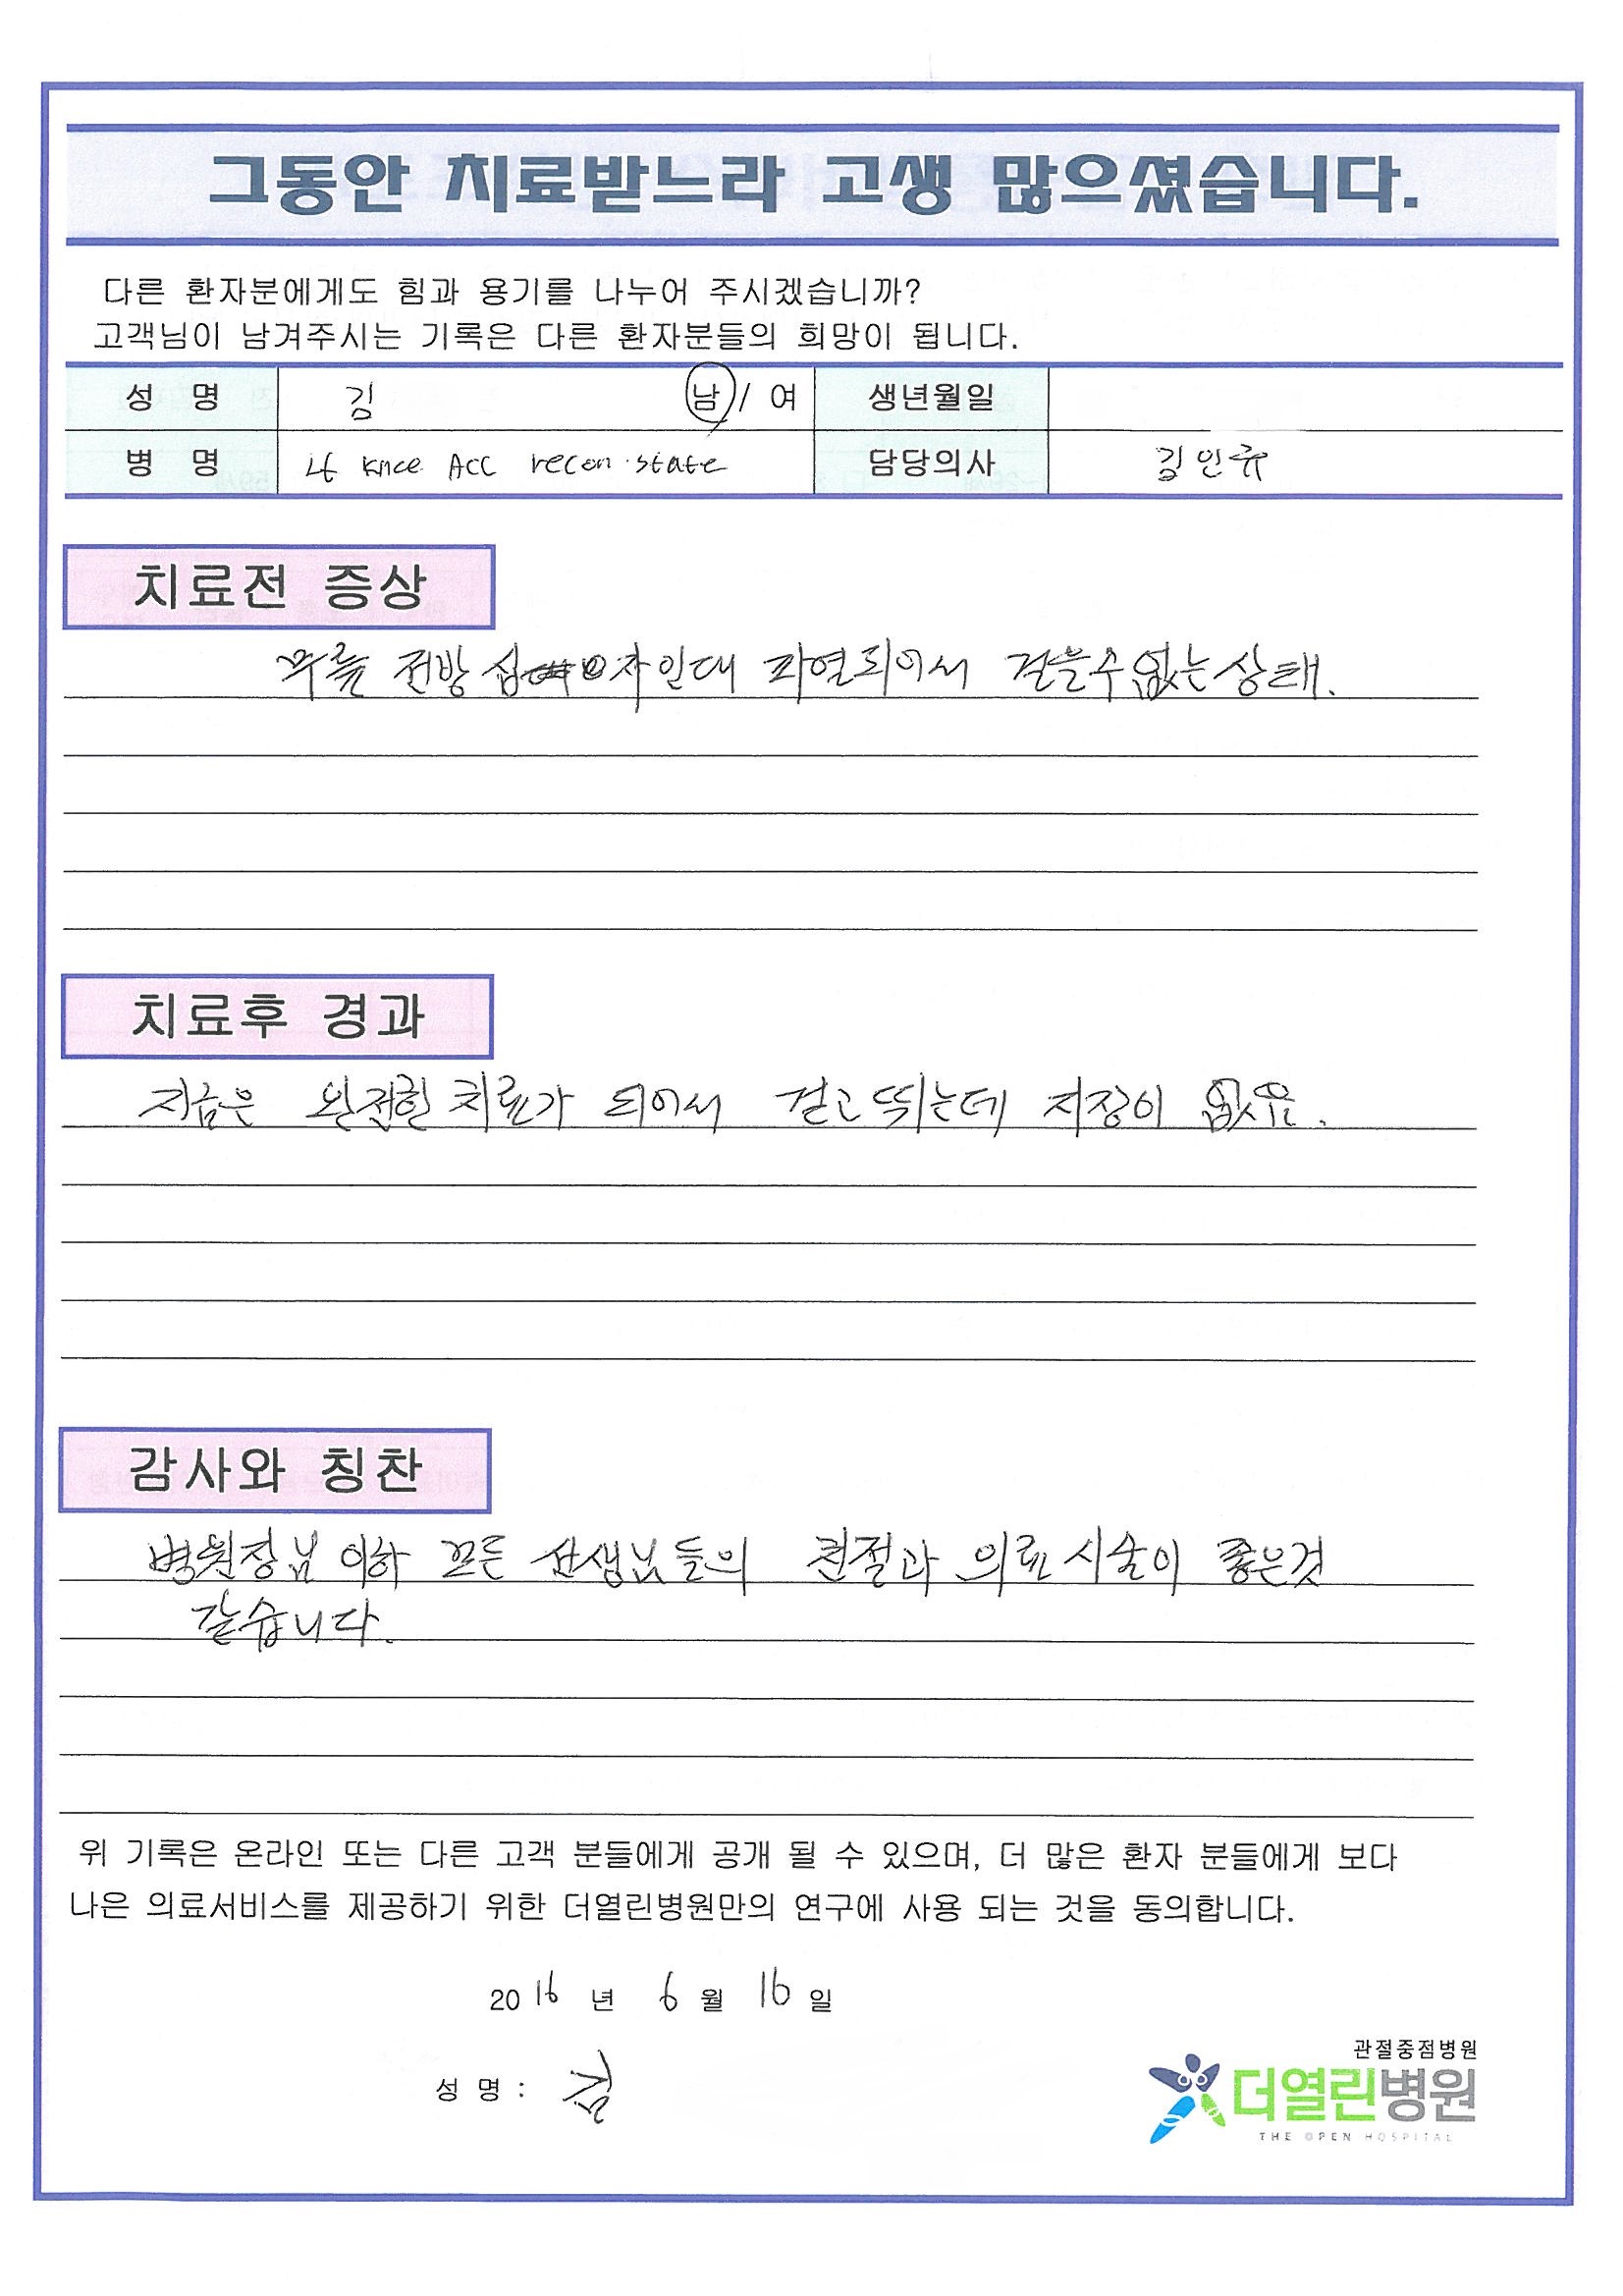 그동안 치료받느라 고생 많으셨습니다.
다른 환자분에게도 힘과 용기를 나누어 주시겠습니까?
고객님이 남겨주시는 기록은 다른 환자분들의 희망이 됩니다.
성 명 김 남 / 여 생년월일
병 명 Lt knee ACC recon.state 담당의사 김인규
치료전 증상
무릎 전방 십자인대 파열되어서 걸을수없는상태.
치료후 경과
지금은 완전한 치료가 되어서 걷고 뛰는데 지장이 없음.
감사와 칭찬
병원장님 이하 모든 선생님들의 친절과 의료시술이 좋은것
같습니다.
위 기록은 온라인 또는 다른 고객 분들에게 공개 될 수 있으며, 더 많은 환자 분들에게 보다
나은 의료서비스를 제공하기 위한 더열린병원만의 연구에 사용 되는 것을 동의합니다.
2016 년 6 월 16 일
성 명 : 김
관절중점병원
더열린병원
THE OPEN HOSPITAL